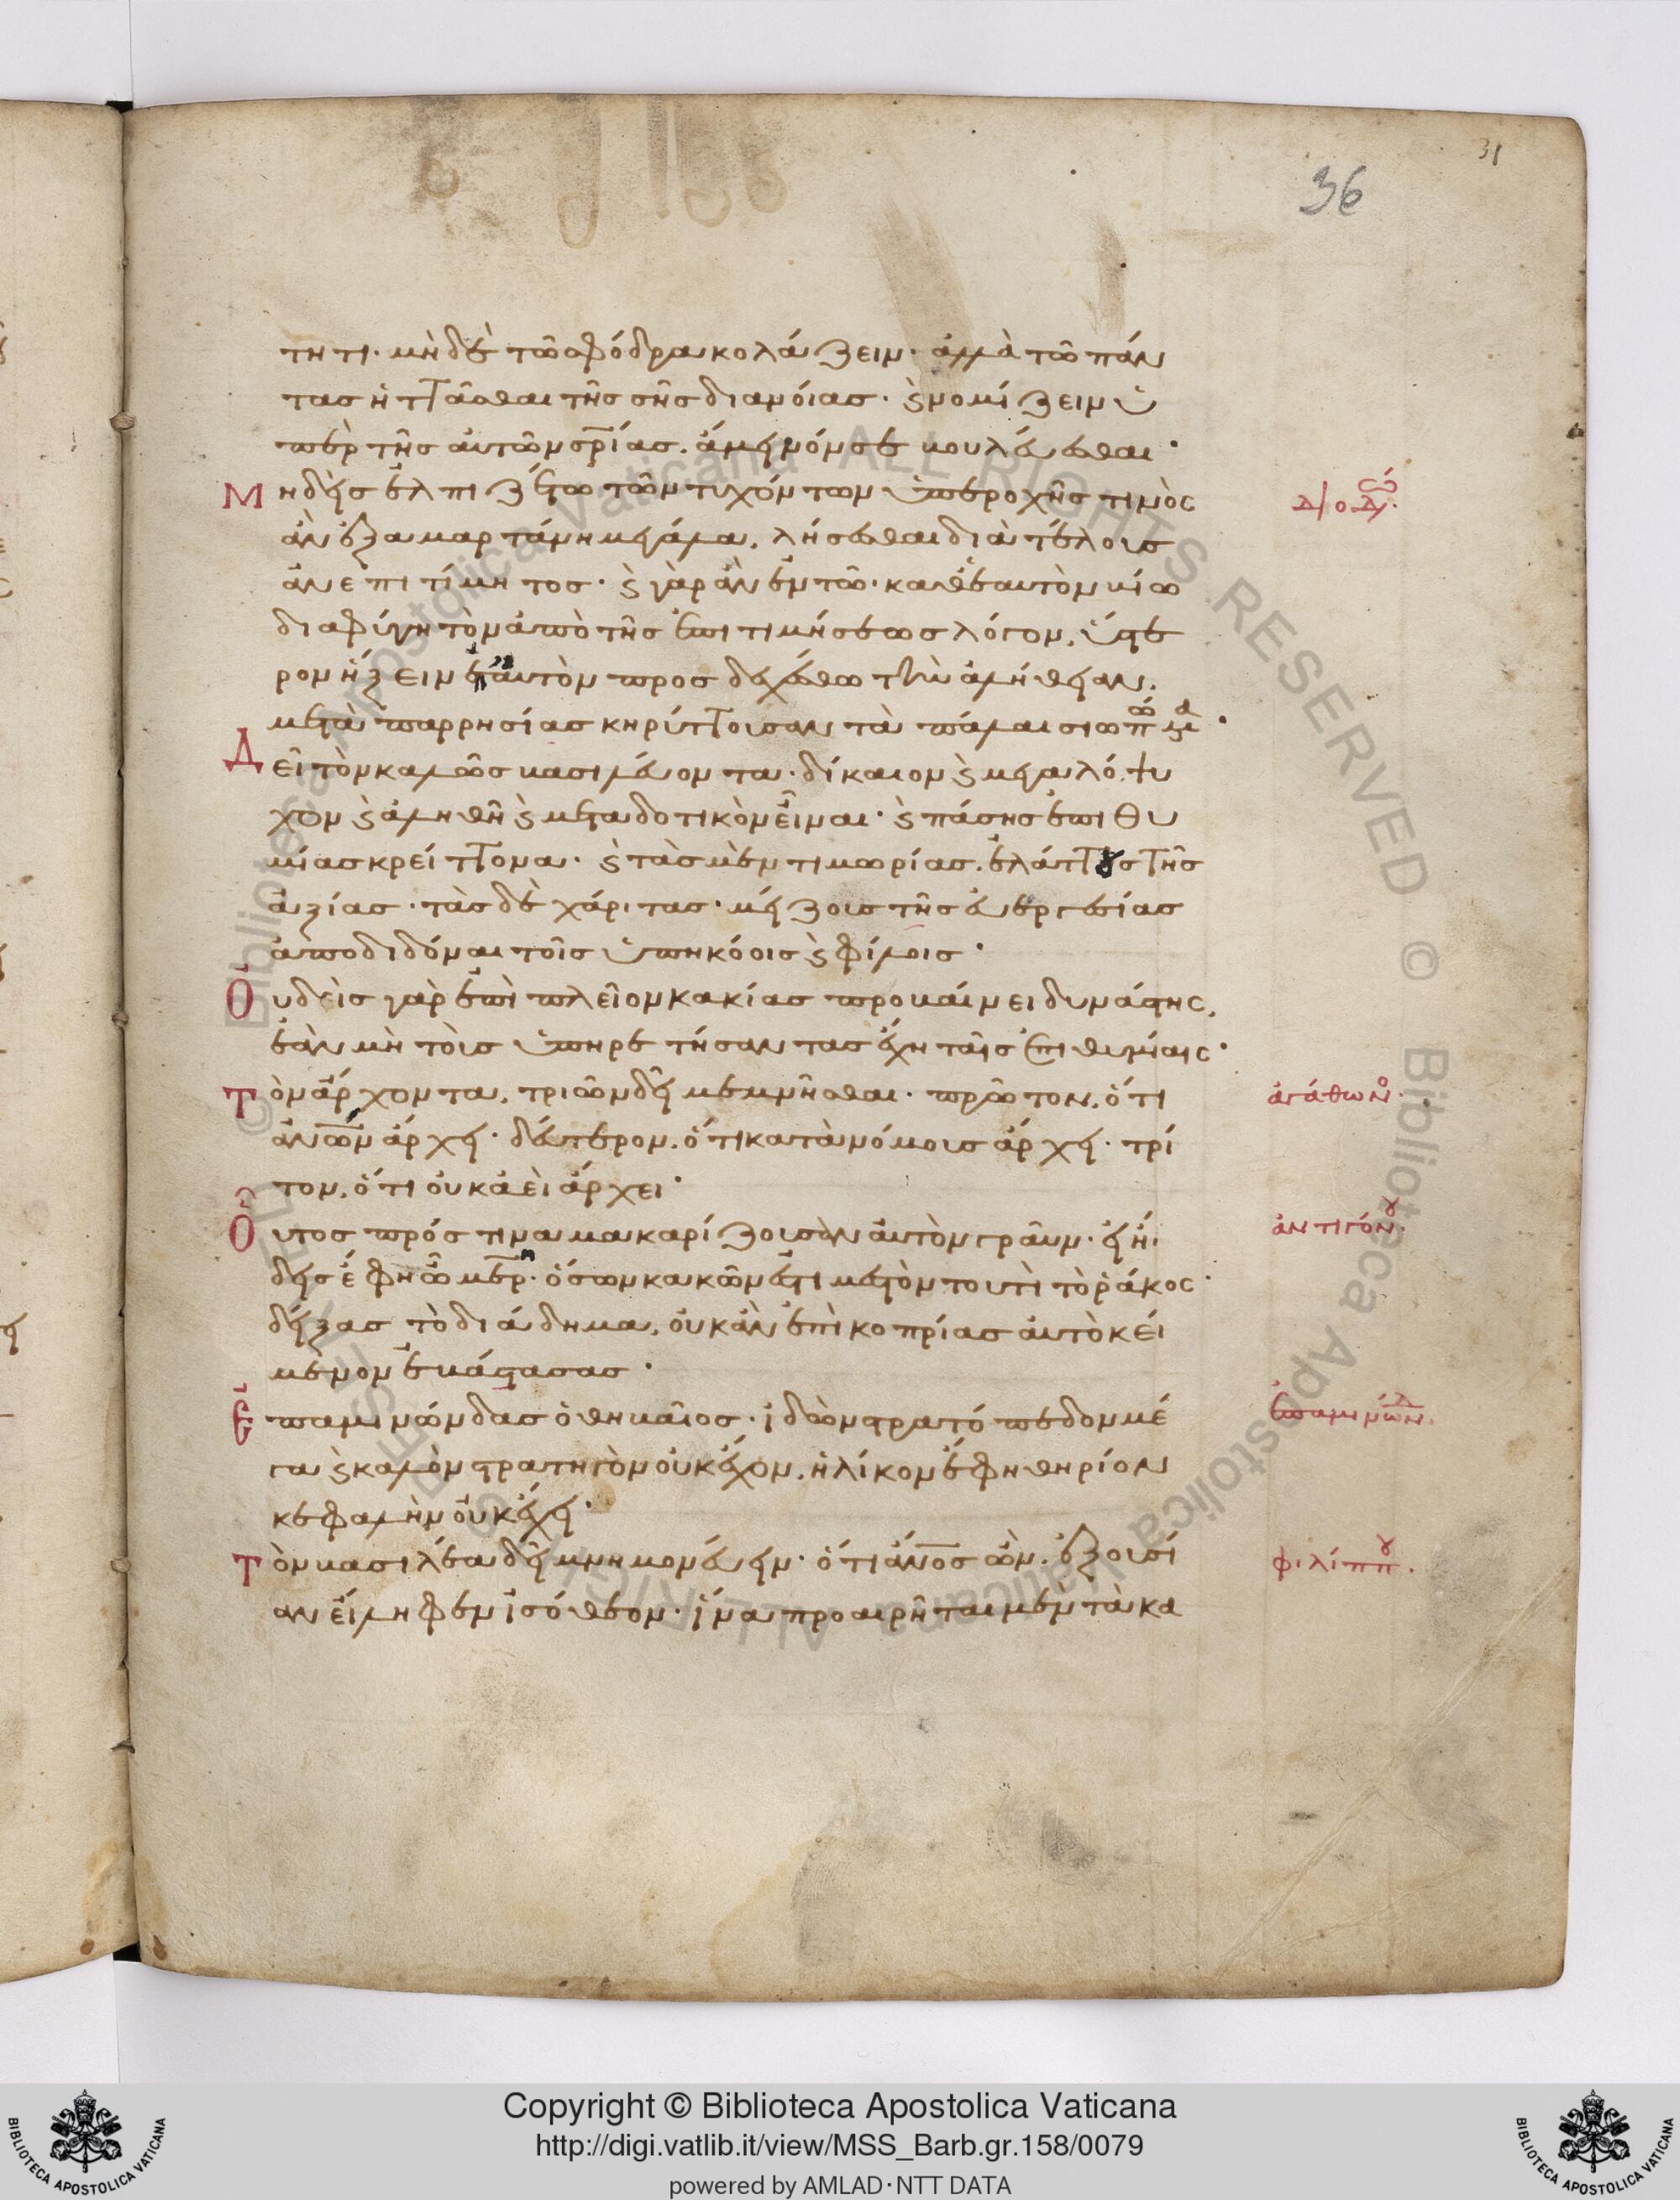 31
36
τητι· μὴδὲ τῶ σφόδρα κολάζειν· ἀλλὰ τῶ πάν
τας ἡττᾶσθαι τῆς σῆς διανοίας· ϗ νομίζειν ὑ
πὲρ τῆς αὐτῶν σρίας. ἄμεινόν σε βουλεύεσθαι·
Μηδεὶς ἐλπιζέτω τῶν τυχόντων ὑπεροχῆς τινὸς
ἂν ἐξαμαρτάνη μεγάλα, λήσεσθαι διὰ τέλους
ἀνεπιτίμητος· ϗ γὰρ ἂν ἐν τῶ· καθ' ἑαυτὸν βίω
διαφύγη τὸν ἀπὸ τῆς ἐπιτιμήσεως λόγον, ὕστε
ρον ἥξειν ἐπ' αὐτὸν προσδεχέσθω τὴν ἀλήθειαν.
μετὰ παρρησίας κηρύττουσαν τὰ πάλαι σιωπώμενα·
Δεῖ τὸν καλῶς βασιλεύοντα· δίκαιον ϗ μεγαλόψυ
χον ϗ ἀληθῆ ϗ μεταδοτικὸν εἶναι· ϗ πάσης ἐπιθυ
μίας κρείττονα· ϗ τὰς μὲν τιμωρίας. ἐλάττους τῆς
ἀξίας· τὰς δὲ χάριτας· μείζους τῆς εὐεργεσίας
ἀποδιδόναι τοῖς ὑπηκόοις ϗ φίλοις·
Οὐδεὶς γὰρ ἐπὶ πλεῖον κακίας προβαίνει δυνάστης,
ἐὰν μὴ τοὺς ὑπηρετήσαντας ἔχη ταῖς ἐπιθυμίαις·
Τὸν ἄρχοντα, τριῶν δεῖ μεμνῆσθαι· πρῶτον, ὅτι
ἀνων ἄρχει· δεύτερον. ὅτι κατὰ νόμους ἄρχει· τρί
τον, ὅτι οὐκ ἀεὶ ἄρχει·
Οὗτος πρός τινα μακαρίζουσαν αὐτὸν γραῦν· εἰ ἤ
δεις ἔφη ὦ μερ· ὅσων κακῶν ἐστι μεστὸν τουτὶ τὸ ῥάκος·
δείξας τὸ διάδημα, οὐκ ἂν ἐπὶ κοπρίας αὐτὸ κεί
μενον ἐβάστασας·
Ἐπαμινώνδας ὁ θηβαῖος· ἰδὼν στρατόπεδον μέ
γα ϗ καλὸν στρατηγὸν οὐκ ἔχον, ἡλίκον ἔφη θηρίον
κεφαλὴν οὐκ ἔχει·
Τὸν βασιλέα δεῖ μνημονεύειν· ὅτι ἄνος ὢν. ἐξουσί
αν εἴληφεν ἰσόθεον· ἵνα προαιρῆται μὲν τὰ κα
διοδώ.
ἀγάθωνο.
ἀντιγόνου.
ἐπαμινώνδ.
φιλίππου.
Copyright © Biblioteca Apostolica Vaticana
http://digi.vatlib.it/view/MSS_Barb.gr.158/0079
powered by AMLAD·NTT DATA
BIBLIOTECA APOSTOLICA VATICANA
BIBLIOTECA APOSTOLICA VATICANA